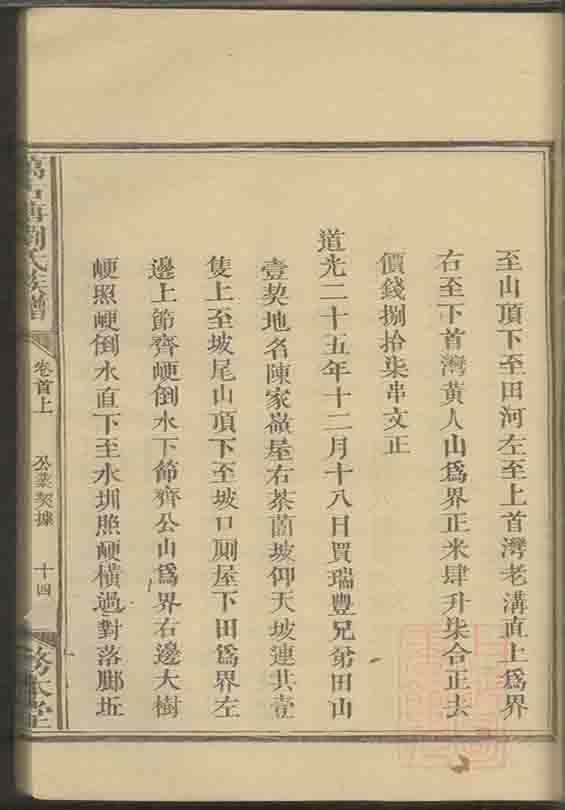 至山頂下至田河左至上首灣老溝直上爲界
右至下首灣黄人山爲界正米肆升柒合正去
價錢捌拾柒串文正
道光二十五年十二月十八日買瑞豐兄弟田山
壹契地名陳家嶺屋右茶薗坡仰天坡連共壹
隻上至坡尾山頂下至坡口厠屋下田爲界左
邊上節齊崾倒水下節齊公山爲界右邊大樹
崾照崾倒水直下至水圳照崾橫過對落廊坵
劉氏族譜
卷首上
公業契據
十四